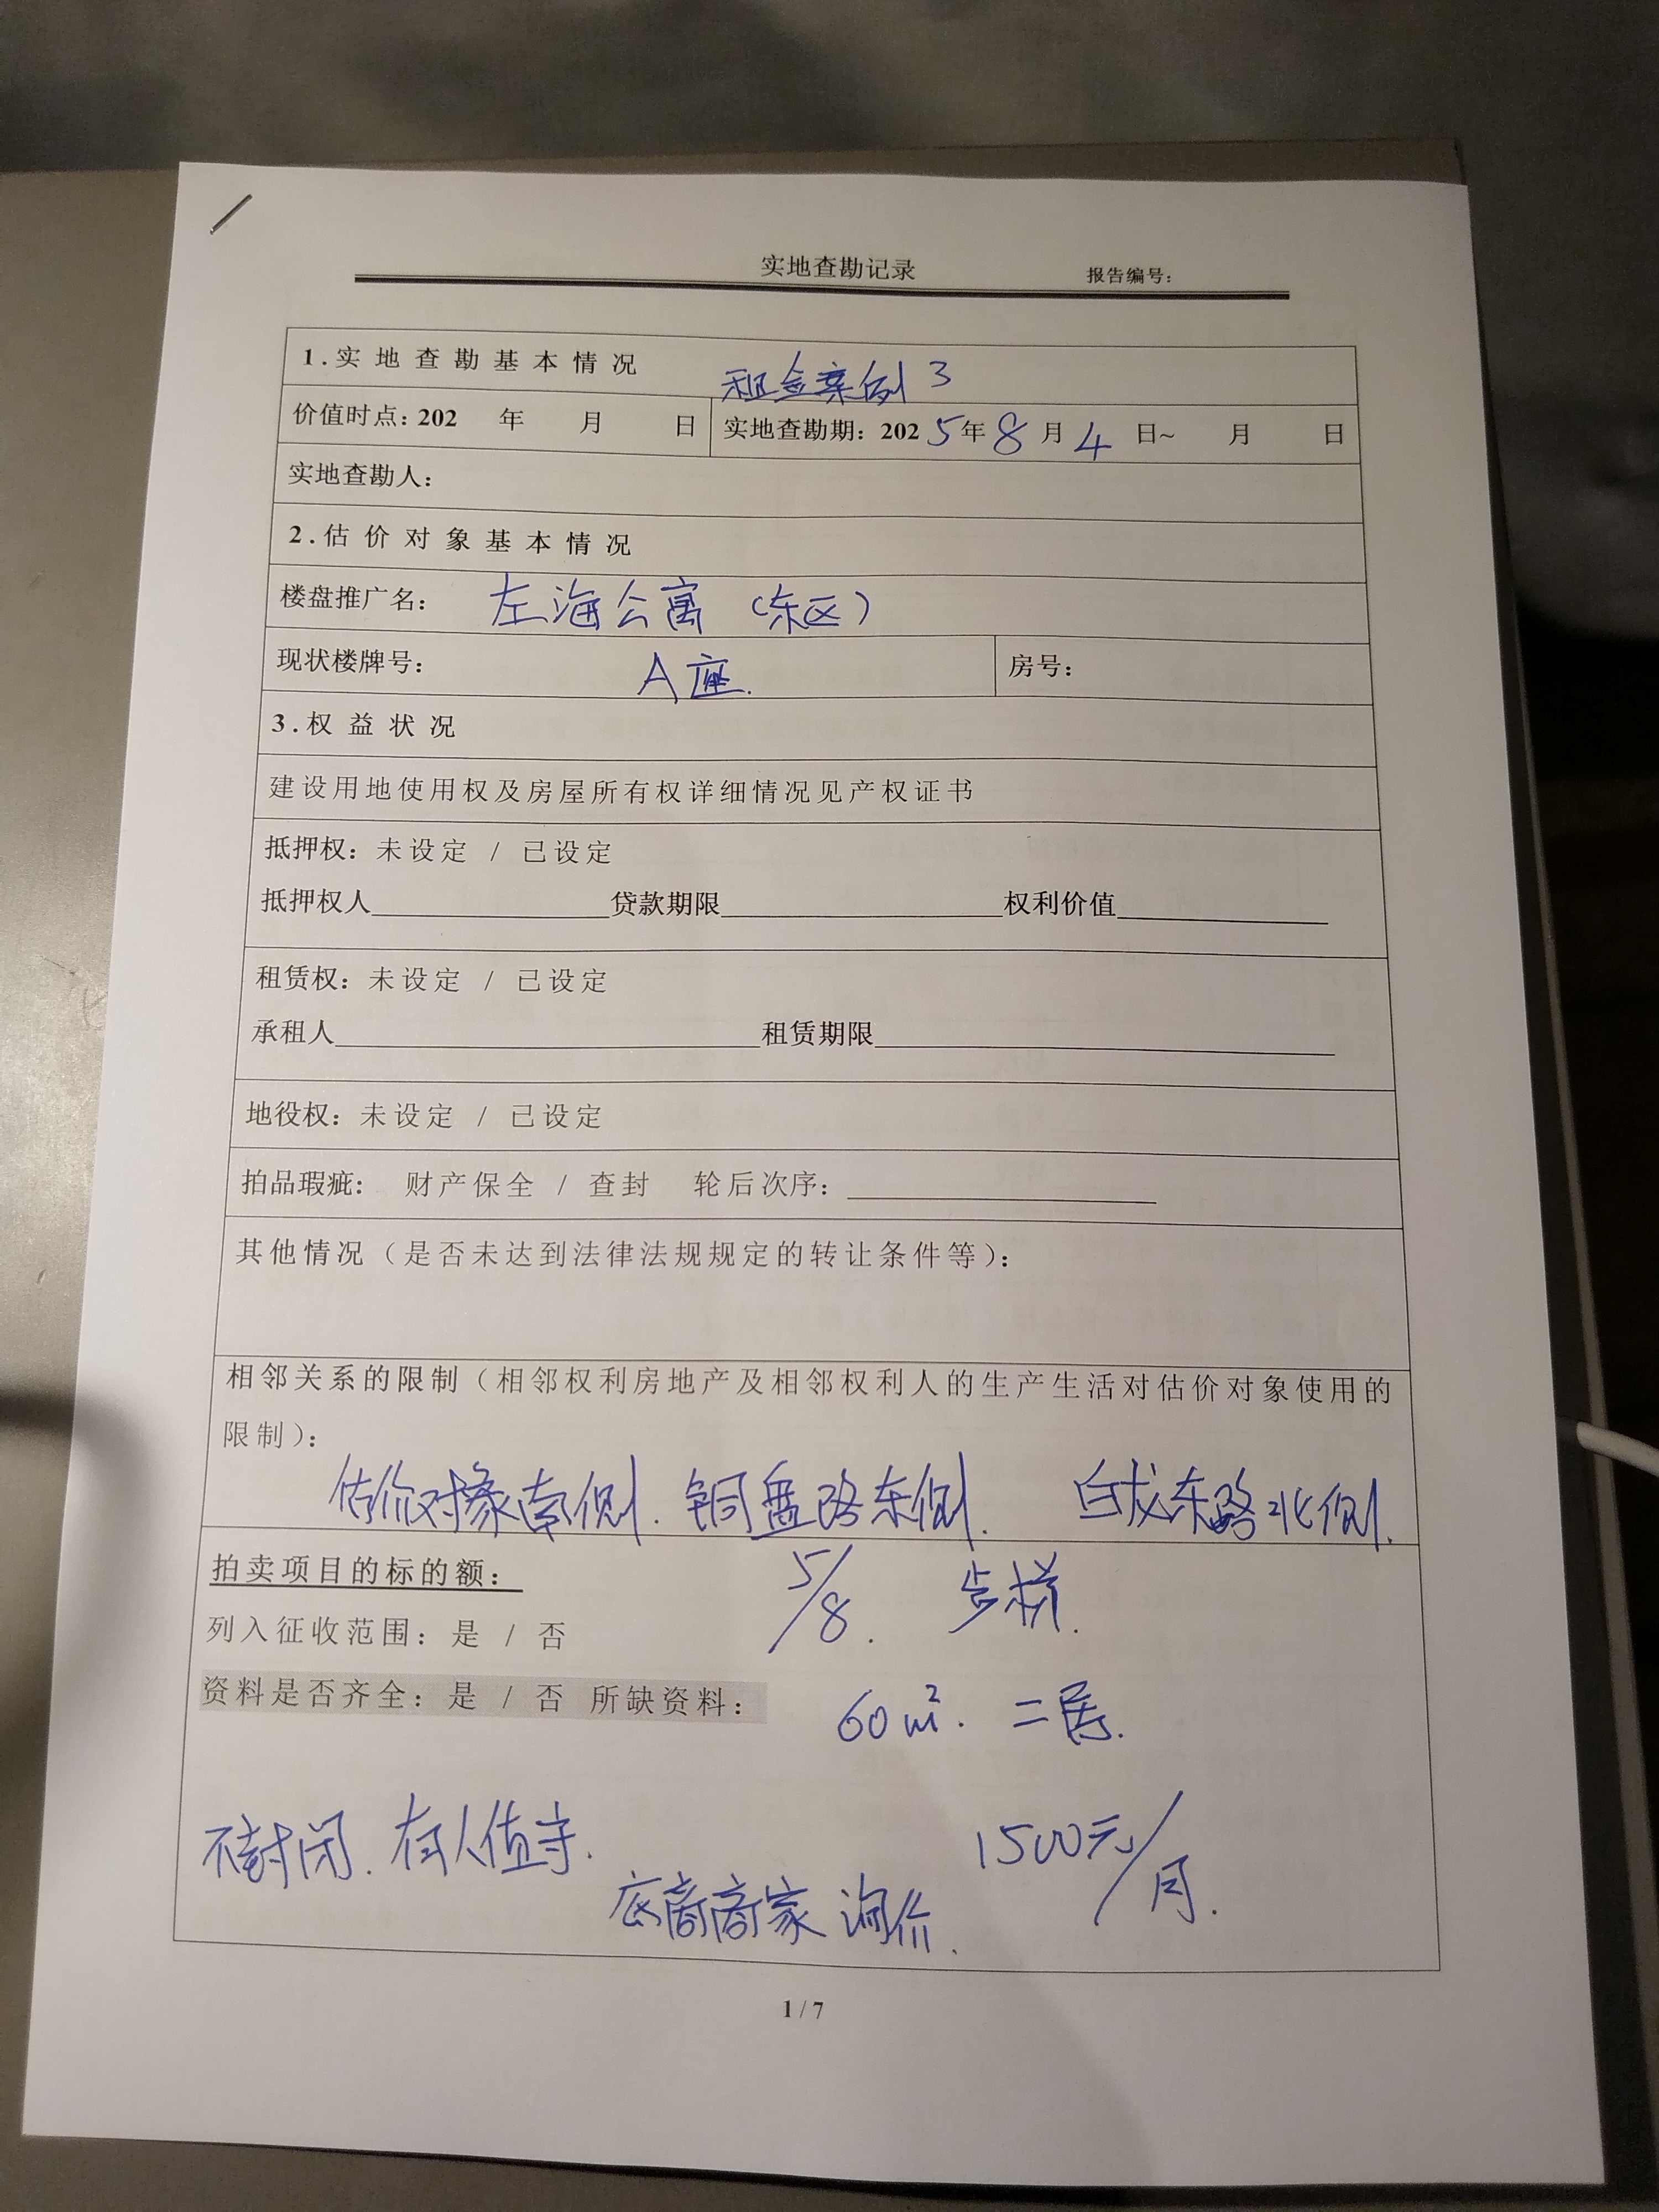 实地查勘记录 报告编号：
1.实地查勘基本情况 租金案例3
价值时点：202 年 月 日 实地查勘期：2025年8月4日~ 月 日
实地查勘人：
2.估价对象基本情况
楼盘推广名： 左海公寓（东区）
现状楼牌号： A座. 房号：
3.权益状况
建设用地使用权及房屋所有权详细情况见产权证书
抵押权：未设定 / 已设定
抵押权人____贷款期限____权利价值____
租赁权：未设定 / 已设定
承租人____租赁期限____
地役权：未设定 / 已设定
拍品瑕疵： 财产保全 / 查封 轮后次序：____
其他情况（是否未达到法律法规规定的转让条件等）：
相邻关系的限制（相邻权利房地产及相邻权利人的生产生活对估价对象使用的
限制）：
估价对象南侧. 铜盘路东侧. 白龙东路北侧.
拍卖项目的标的额： 5/8. 步梯.
列入征收范围：是 / 否
资料是否齐全：是 / 否 所缺资料： 60㎡. 二居.
不封闭. 有人值守. 1500元/月.
底商商家询价.
1 / 7